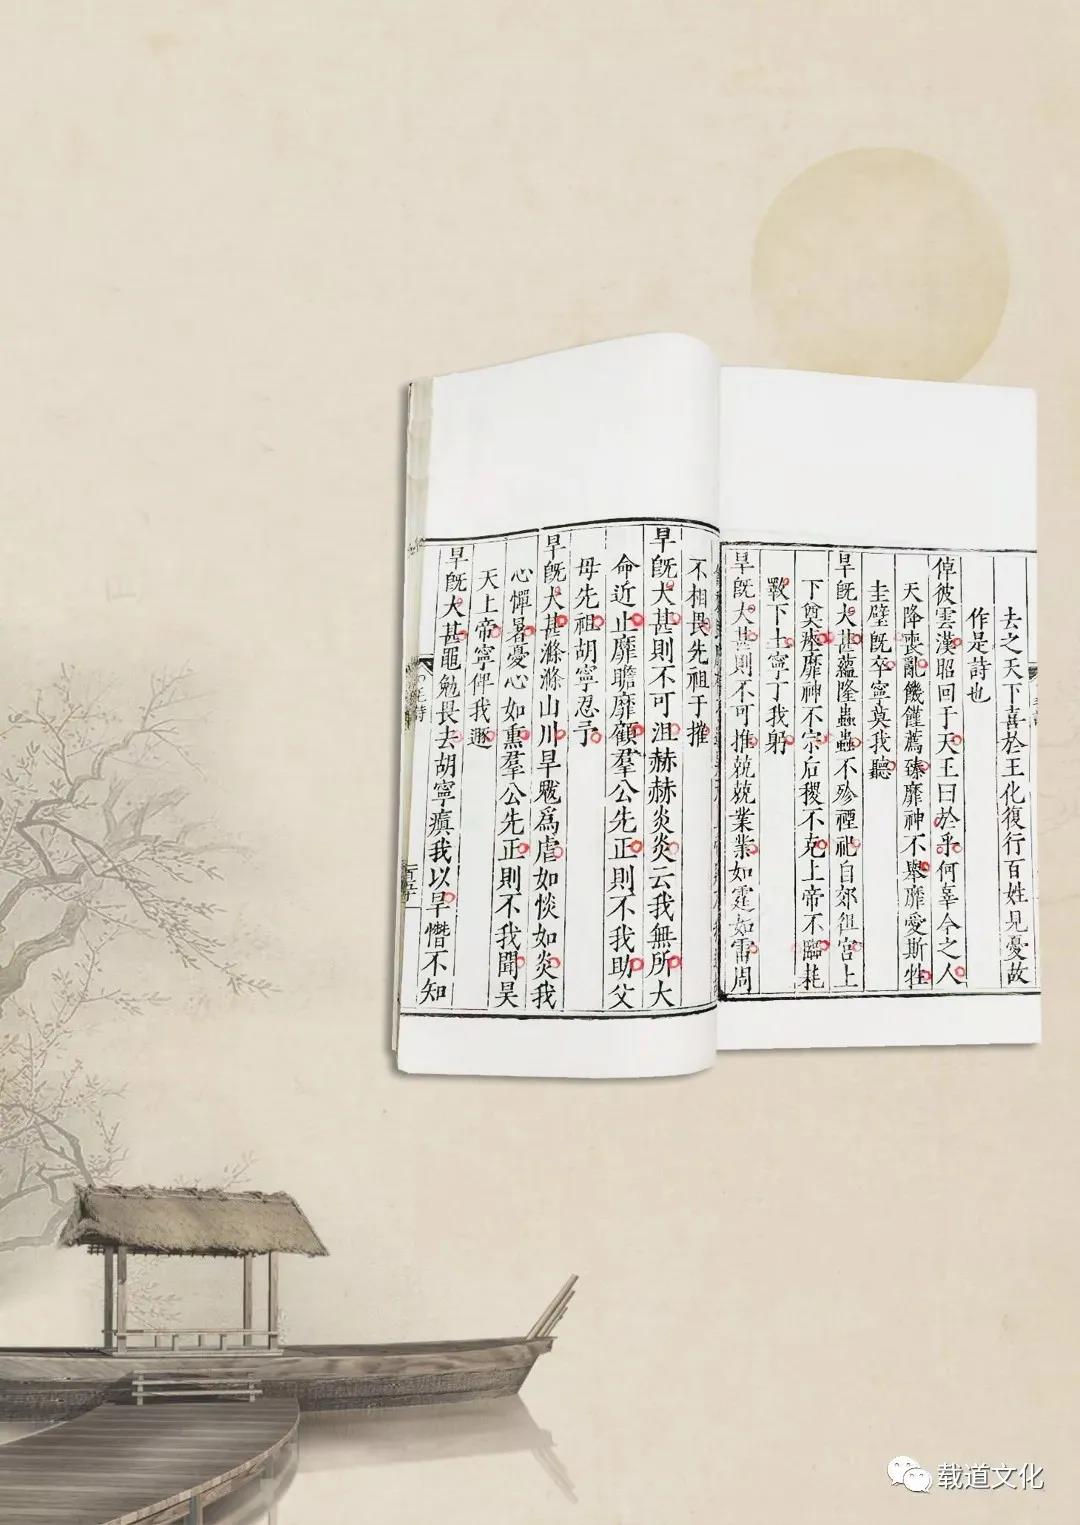 去之天下喜於王化復行百姓見憂故
作是詩也
倬彼雲漢昭回于天王曰於乎何辜今之人
天降喪亂饑饉薦臻靡神不舉靡愛斯牲
圭璧既卒寧莫我聽
旱既大甚蘊隆蟲蟲不殄禋祀自郊徂宮上
下奠瘞靡神不宗后稷不克上帝不臨耗
斁下土寧丁我躬
旱既大甚則不可推兢兢業業如霆如雷周
不相畏先祖于摧
旱既大甚則不可沮赫赫炎炎云我無所大
命近止靡瞻靡顧羣公先正則不我助父
母先祖胡寧忍予
旱既大甚滌滌山川旱魃爲虐如惔如炎我
心憚暑憂心如熏羣公先正則不我聞昊
天上帝寧俾我遯
旱既大甚黽勉畏去胡寧瘨我以旱憯不知
载道文化